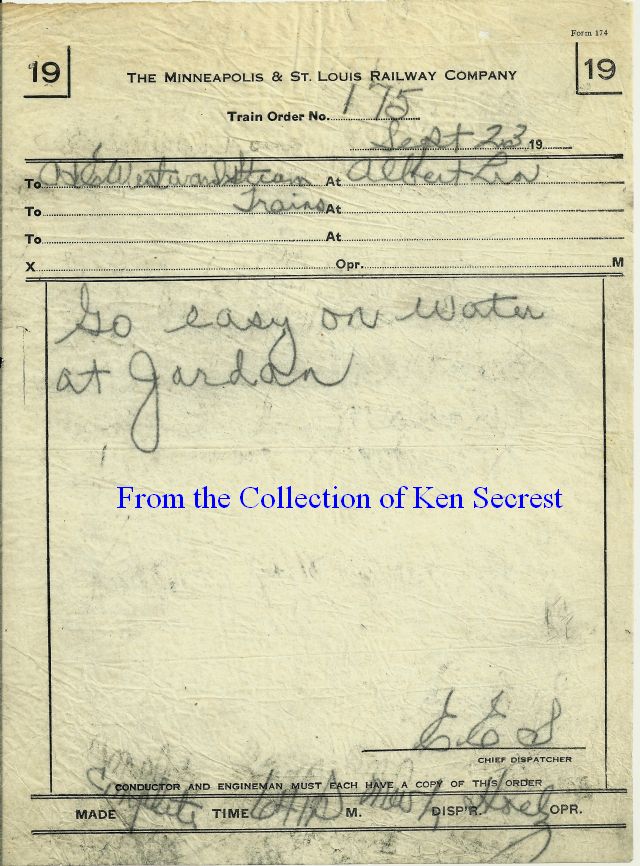 Form 174
19 19
THE MINNEAPOLIS & ST. LOUIS RAILWAY COMPANY
Train Order No. 175
Sept 23 19
To Westward Steam At Albert Lea
To Trains At
To At
X Opr. M
Go easy on water
at Jordan
From the Collection of Ken Secrest
E E S
CHIEF DISPATCHER
CONDUCTOR AND ENGINEMAN MUST EACH HAVE A COPY OF THIS ORDER
MADE Complete TIME M. DISP'R. OPR.